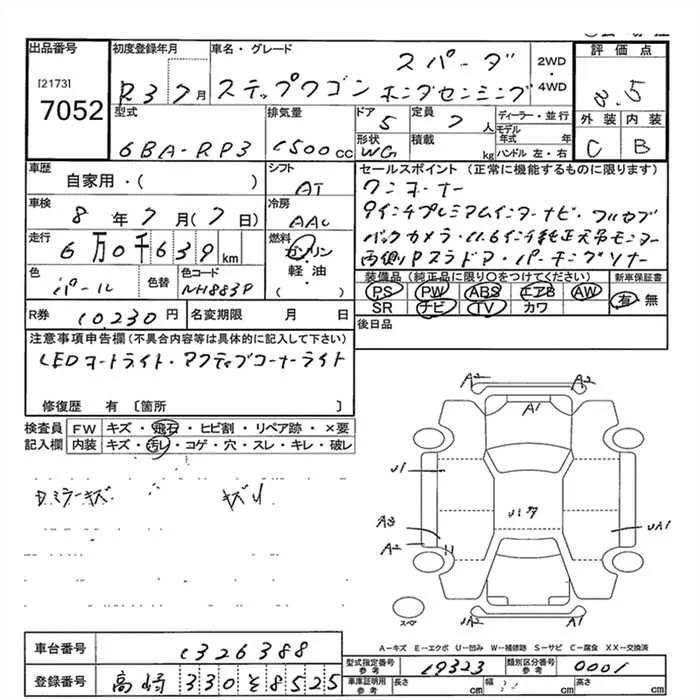 出品番号
[2173]
7052
初度登録年月
R3 7月
車名・グレード
ステップワゴン
スパーダ
ホンダセンシング
2WD
・
4WD
評価点
外装 内装
C B
型式
6BA-RP3
排気量
1500cc
ドア
5
形状
WG
定員
7人
積載
kg
ディーラー・並行
モデル年式 年
ハンドル 左・右
車歴
自家用・( )
シフト
AT
車検
8年7月(7日)
冷房
AAC
走行
6万0千639km
燃料
ガソリン
・
軽・油
( )
色
パール
色替
色コード
NH883P
R券
10,230円
名変期限 月 日
セールスポイント (正常に機能するものに限ります)
ワンオーナー
9インチプレミアムインターナビ・フルセグ
バックカメラ・11.6インチ純正天吊モニター
両側Pスラドア・パーキングソナー
装備品 (純正品に限り〇をつけてください)
新車保証書
PS PW ABS エアB AW
SR ナビ TV カワ
有・無
後日品
注意事項申告欄(不具合内容等は具体的に記入して下さい)
LEDヘッドライト・アクティブコーナーライト
修復歴 有 〔箇所 〕
検査員
記入欄
FW キズ・飛石・ヒビ割・リペア跡・×要
内装 キズ・汚レ・コゲ・穴・スレ・キレ・破レ
ミラーキズ
A2 A2
A1
U1
A3
A2
UA1
U2 A1
スペ
A-キズ E-エクボ U-凹み W-補修跡 S-サビ C-腐食 XX-交換済
車台番号
1326388
登録番号
高崎 330 そ 8525
型式指定番号
参考
19323
類別区分番号
参考
0001
車庫証明用
参考
長さ cm 幅 cm 高さ cm